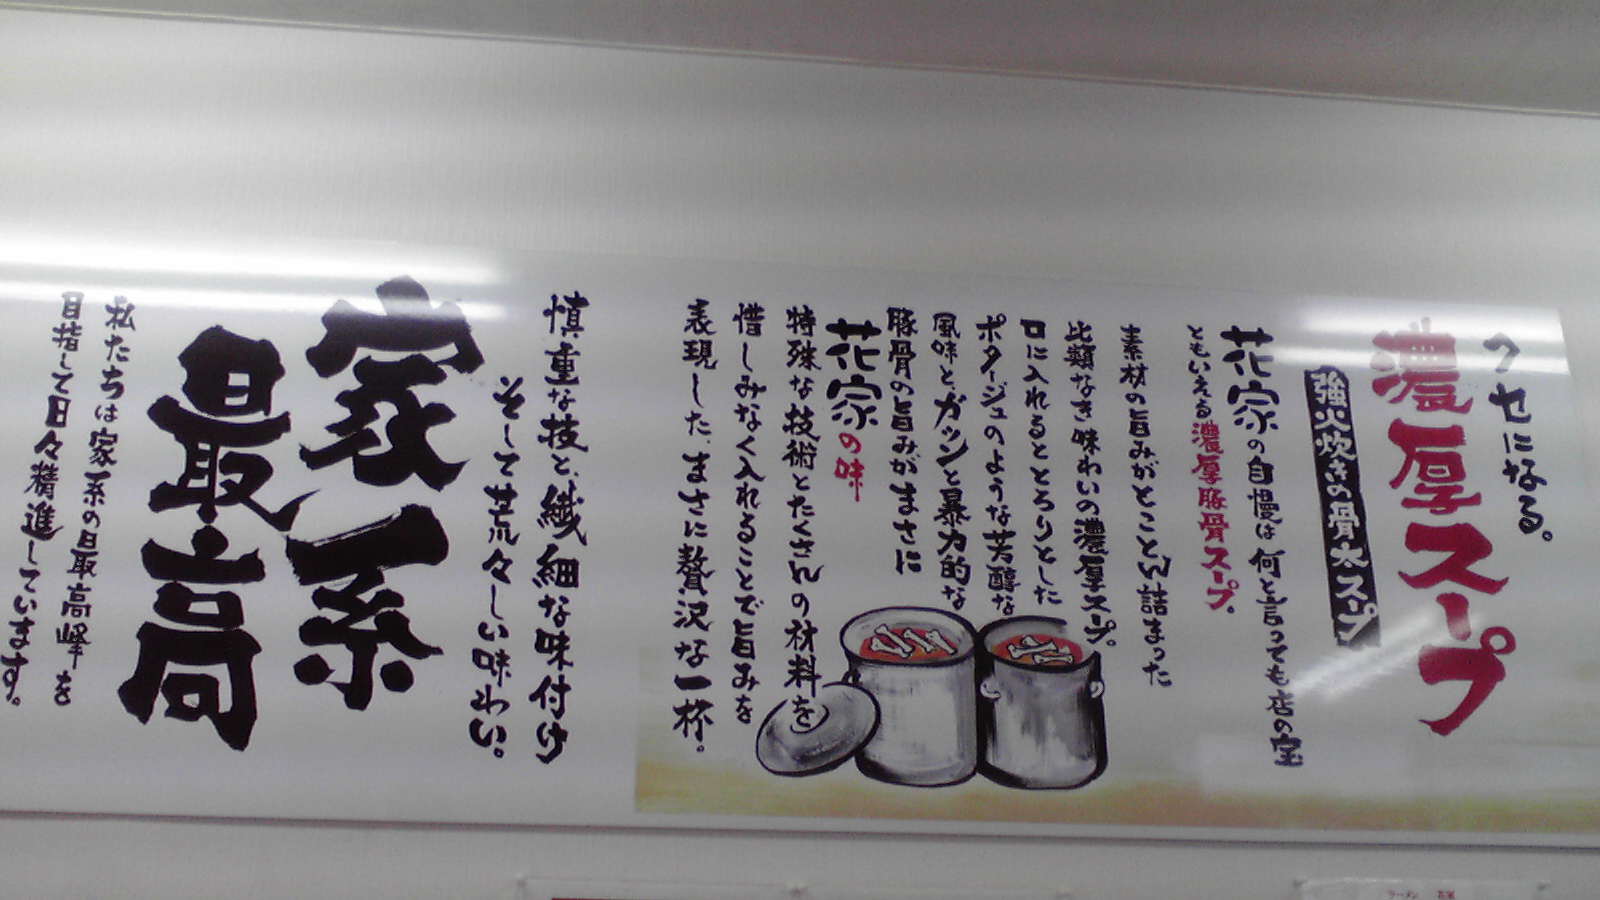 クセになる。
濃厚スープ
強火炊きの骨太スープ
花家の自慢は何と言っても店の宝
ともいえる濃厚豚骨スープ。
素材の旨みがとことん詰まった
比類なき味わいの濃厚スープ。
口に入れるととろりとした
ポタージュのような芳醇な
風味と、ガツンと暴力的な
豚骨の旨みがまさに
花家の味
特殊な技術とたくさんの材料を
惜しみなく入れることで旨みを
表現した、まさに贅沢な一杯。
慎重な技と、繊細な味付け
そして荒々しい味わい。
家系
最高
私たちは家系の最高峰を
目指して日々精進しています。
ラーメン